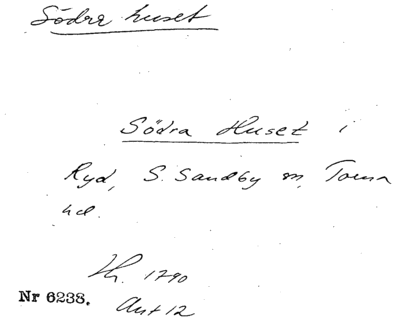 Södra huset
Södra Huset i
Ryd, S. Sandby sn, Torna
hd.
Hh. 1790
Nr 6238. Ant 12